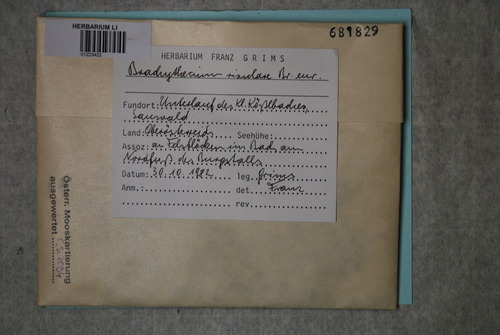 HERBARIUM LI
01223422
681829
HERBARIUM FRANZ GRIMS
Brachythecium rivulare Br. eur.
Fundort: Unterlauf des kl. Kößlbaches,
Sauwald
Land: Oberösterreich Seehöhe:
Assoz: an Felsblöcken im Bach, am
Nordfuß des Burgstalls
Datum: 30.10.1982 leg. Grims
Anm.: det. Franz
rev.
Österr. Mooskartierung
ausgewertet